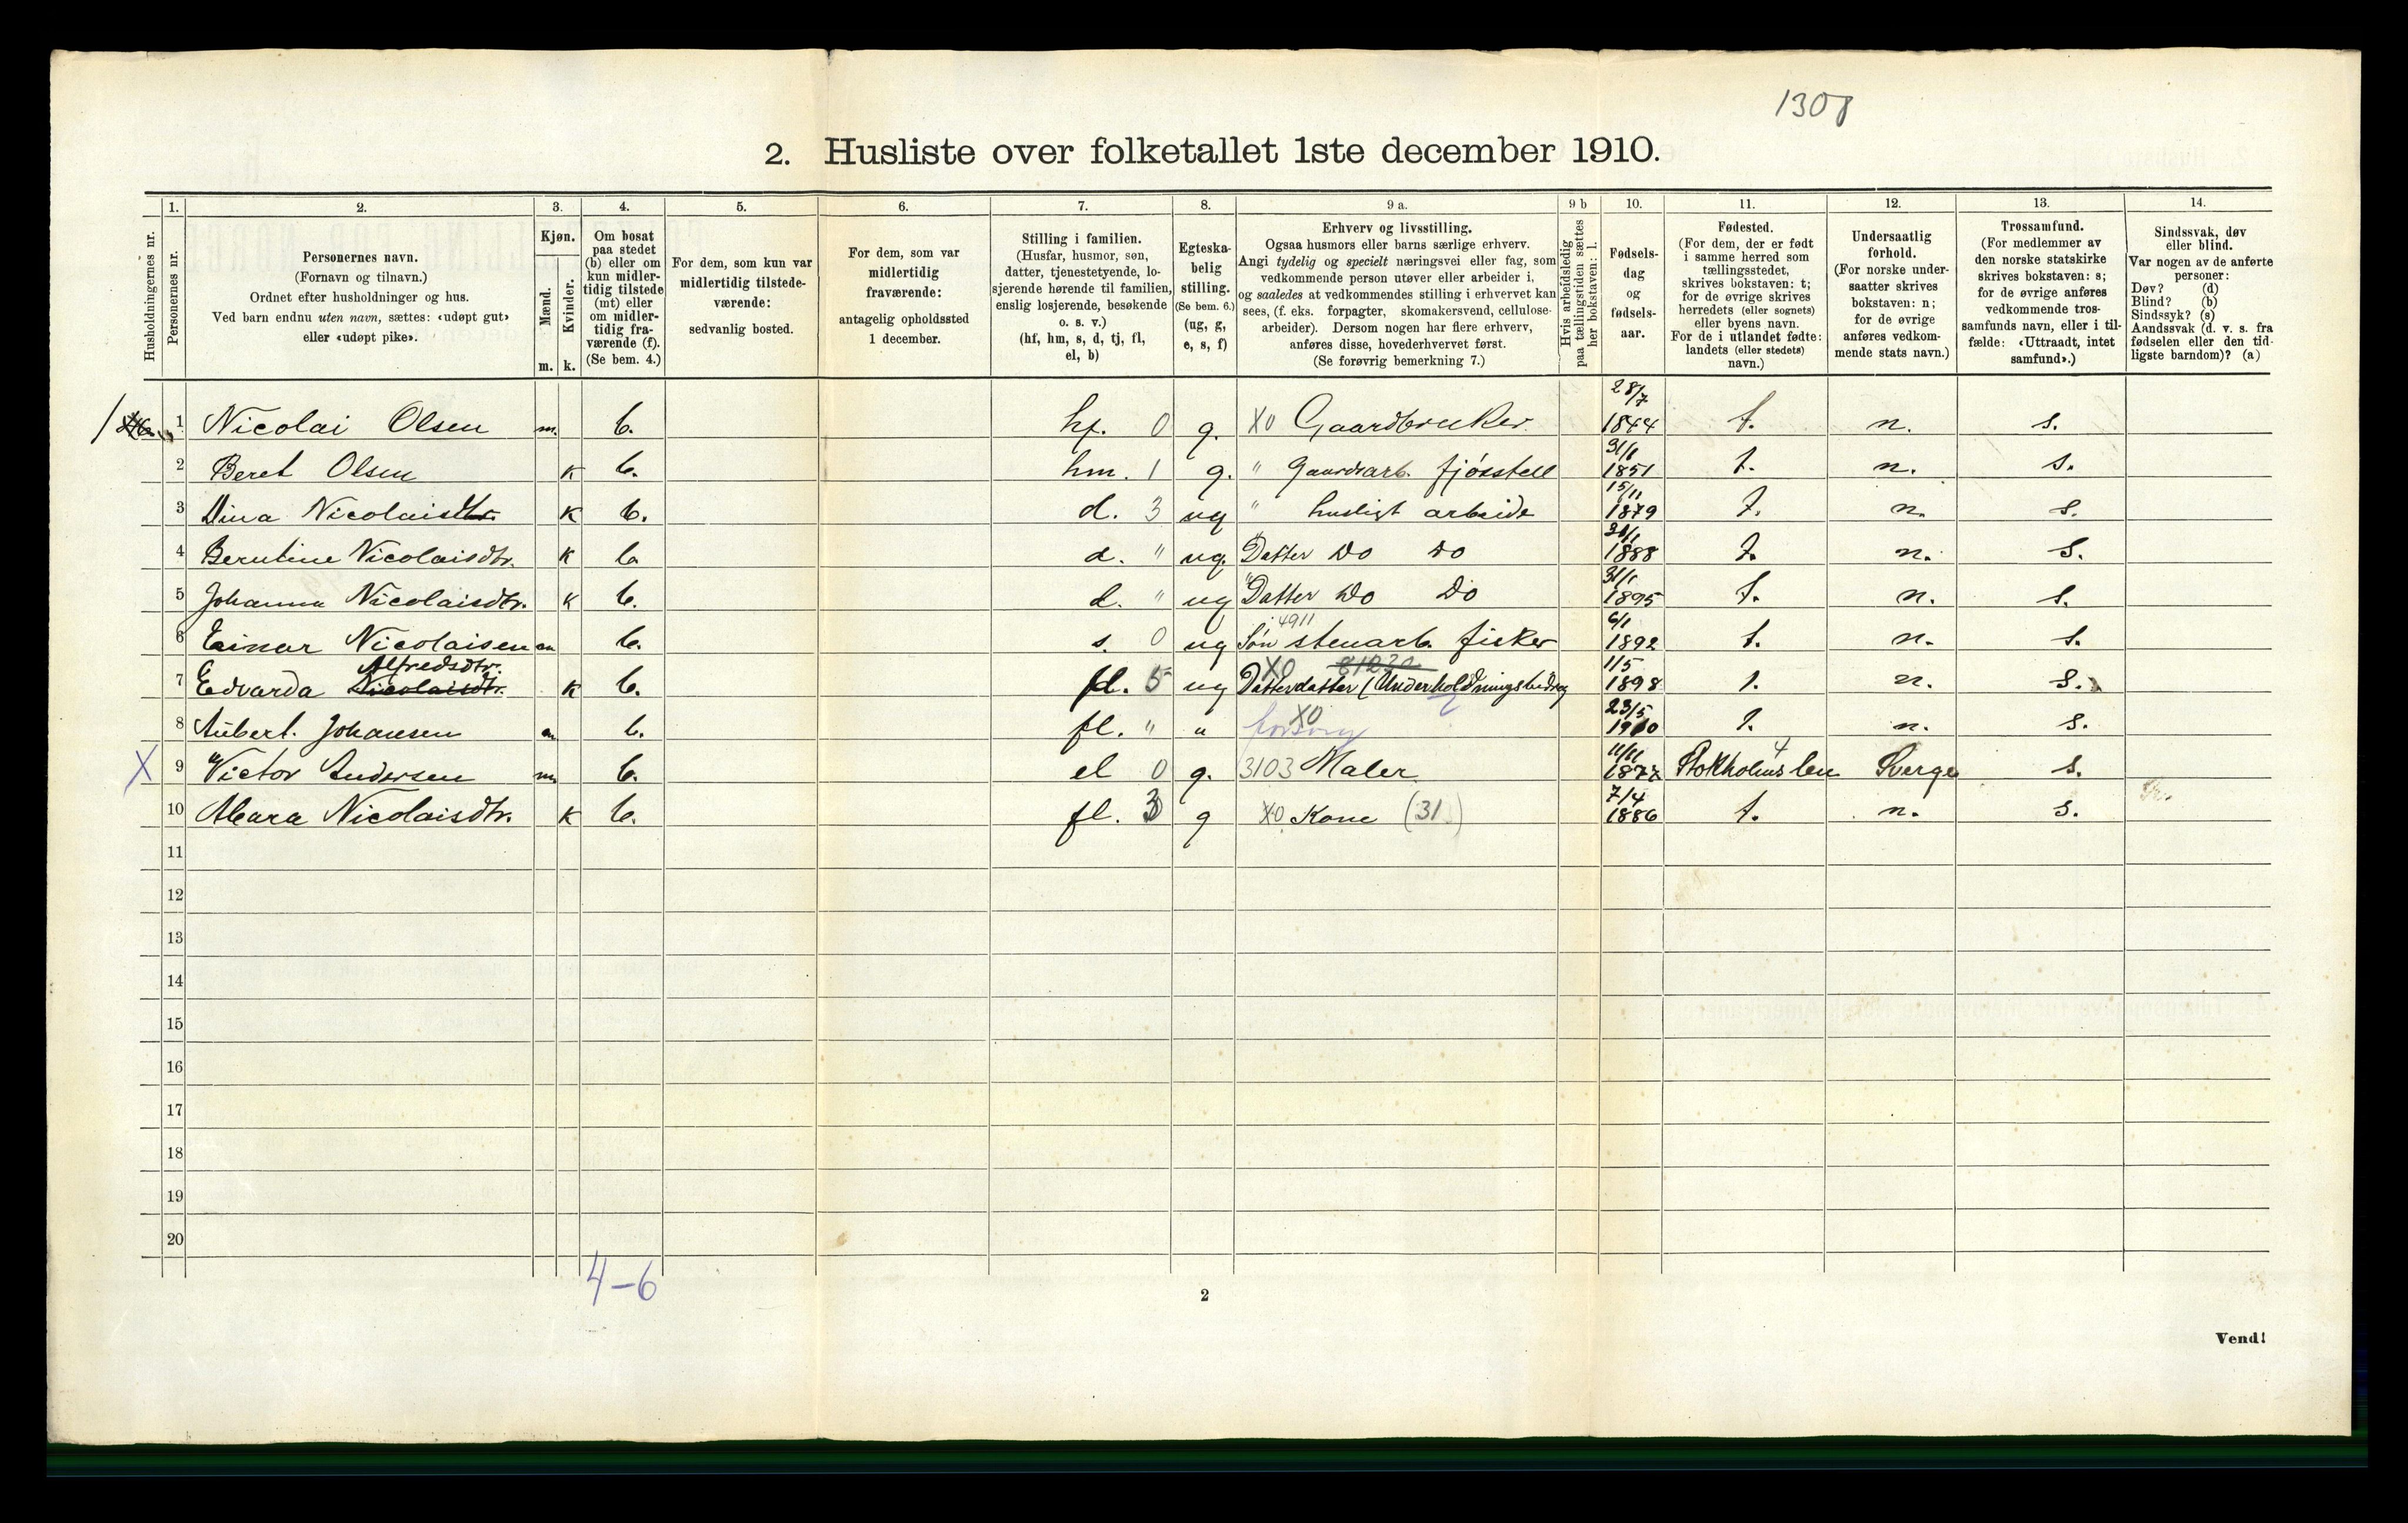 1308
2. Husliste over folketallet 1ste december 1910.
1. 2. 3. 4. 5. 6. 7. 8. 9 a. 9 b 10. 11. 12. 13. 14.
Husholdningernes nr.
Personernes nr.
Personernes navn.
(Fornavn og tilnavn.)
Ordnet efter husholdninger og hus.
Ved barn endnu uten navn, sættes: «udøpt gut»
eller «udøpt pike».
Kjøn.
Mænd.
Kvinder.
m. k.
Om bosat
paa stedet
(b) eller om
kun midler-
tidig tilstede
(mt) eller
om midler-
tidig fra-
værende (f).
(Se bem. 4.)
For dem, som kun var
midlertidig tilstede-
værende:
sedvanlig bosted.
For dem, som var
midlertidig
fraværende:
antagelig opholdssted
1 december.
Stilling i familien.
(Husfar, husmor, søn,
datter, tjenestetyende, lo-
sjerende hørende til familien,
enslig losjerende, besøkende
o. s. v.)
(hf, hm, s, d, tj, fl,
el, b)
Egteska-
belig
stilling.
(Se bem. 6.)
(ug, g,
e, s, f)
Erhverv og livsstilling.
Ogsaa husmors eller barns særlige erhverv.
Angi tydelig og specielt næringsvei eller fag, som
vedkommende person utøver eller arbeider i,
og saaledes at vedkommendes stilling i erhvervet kan
sees, (f. eks. forpagter, skomakersvend, cellulose-
arbeider). Dersom nogen har flere erhverv,
anføres disse, hovederhvervet først.
(Se forøvrig bemerkning 7.)
Hvis arbeidsledig
paa tællingstiden sættes
her bokstaven: l.
Fødsels-
dag
og
fødsels-
aar.
Fødested.
(For dem, der er født
i samme herred som
tællingsstedet,
skrives bokstaven: t;
for de øvrige skrives
herredets (eller sognets)
eller byens navn.
For de i utlandet fødte:
landets (eller stedets)
navn.)
Undersaatlig
forhold.
(For norske under-
saatter skrives
bokstaven: n;
for de øvrige
anføres vedkom-
mende stats navn.)
Trossamfund.
(For medlemmer av
den norske statskirke
skrives bokstaven: s;
for de øvrige anføres
vedkommende tros-
samfunds navn, eller i til-
fælde: «Uttraadt, intet
samfund».)
Sindssvak, døv
eller blind.
Var nogen av de anførte
personer:
Døv? (d)
Blind? (b)
Sindssyk? (s)
Aandssvak (d. v. s. fra
fødselen eller den tid-
ligste barndom)? (a)
1 Nicolai Olsen m. b. hf. 0 g. X0 Gaardbruker 28/7 1844 t. n. s.
2 Beret Olsen k b. hm. 1 g. " Gaardsarb. fjösstell 31/1 1851 t. n. s.
3 Dina Nicolaisdtr. k b. d. 3 ug " husligt arbeide 15/11 1879 t. n. s.
4 Berntine Nicolaisdtr. k b. d. " ug. Datter Do Do 1888 t. n. s.
5 Johanna Nicolaisdtr. k b. d. " ug Datter Do Do 31/1 1895 t. n. s.
4911
6 Einar Nicolaisen m b. s. 0 ug Søn stenarb. fisker 6/1 1892 t. n. s.
Alfredsdtr.
7 Edvarda Nicolaisdtr. k b. fl. 5 ug X0 Datterdatter (Underholdningsbidrag 1/5 1898 t. n. s.
8 Aubert Johansen m b. fl. " " X0 forsørg 23/5 1910 t. n. s.
X 9 Victor Andersen m b. el 0 g. 3103 Maler 11/11 Stokholms len 4 Sverge s.
10 Alvara Nicolaisdtr. k b. fl. 3 g X0 Kone (31) 7/4 1886 t. n. s.
11
12
13
14
15
16
17
18
19
20
4-6
2
Vend!